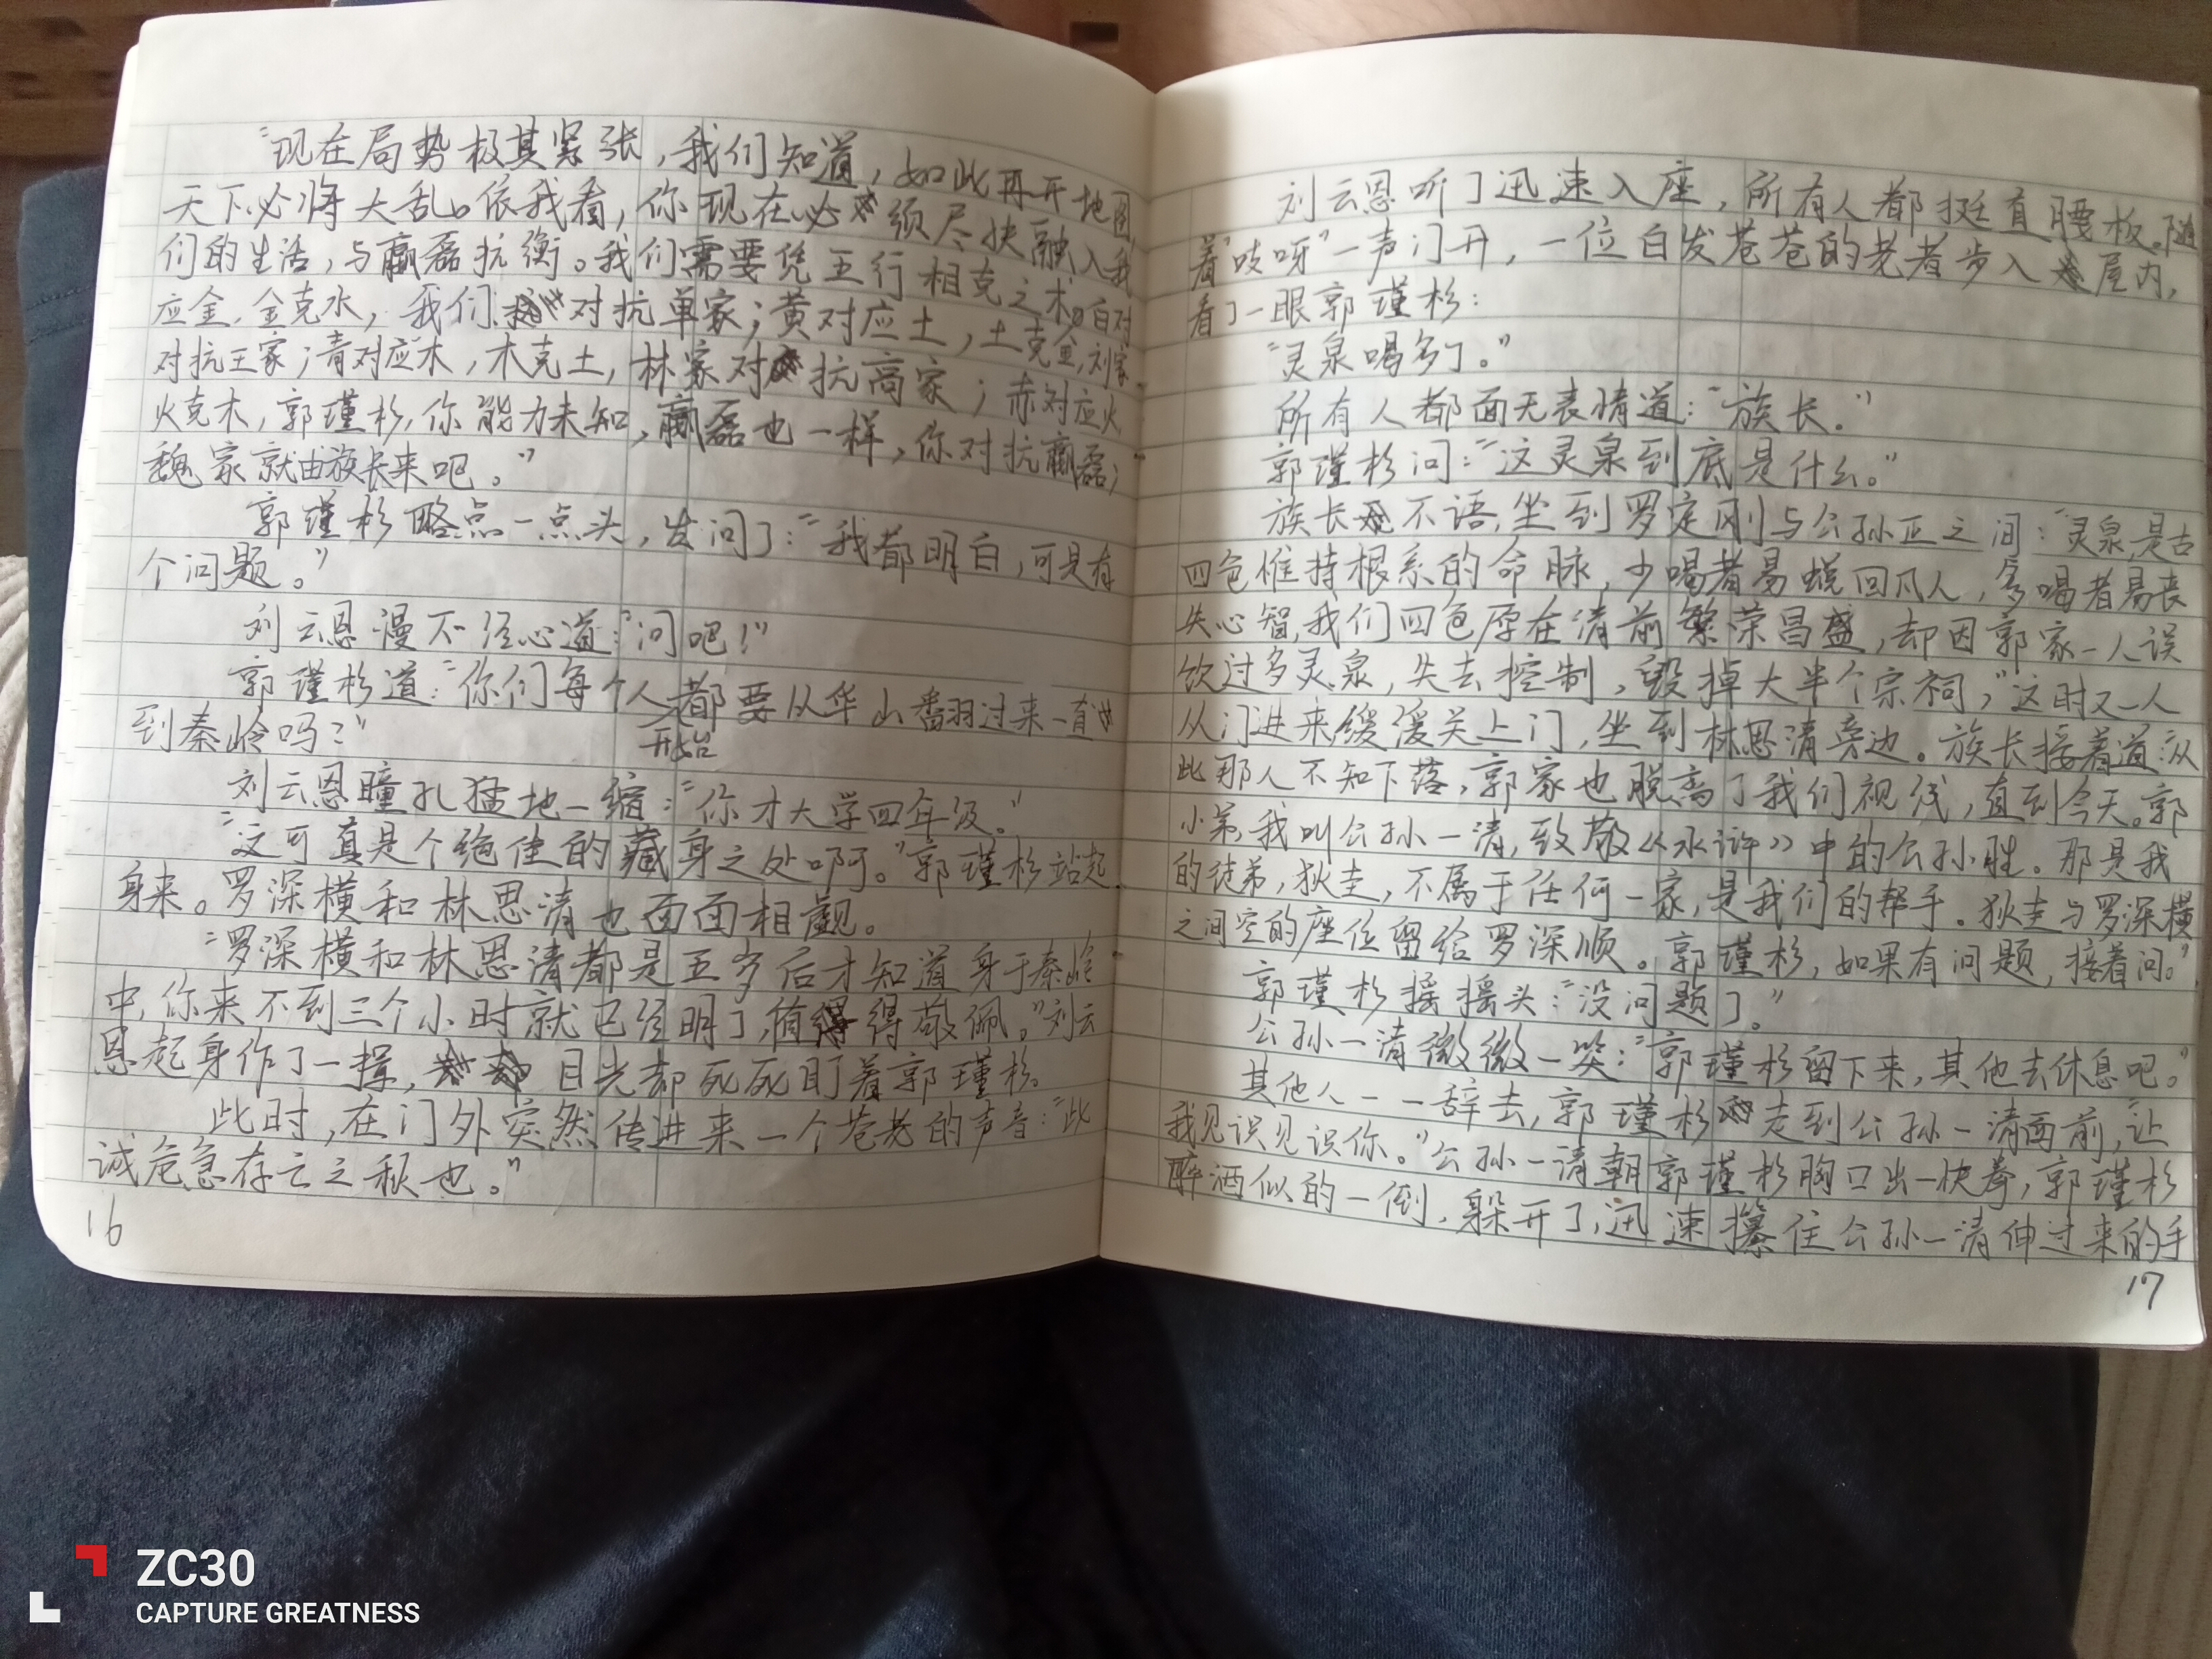 "现在局势极其紧张，我们知道，如此再开地图，
天下必将大乱。依我看，你现在必须尽快融入我
们的生活，与赢磊抗衡。我们需要凭五行相克之术。白对
应金，金克水，我们对抗单家；黄对应土，土克金，刘家
对抗王家；青对应木，木克土，林家对抗高家；赤对应火
火克木，郭瑾杉，你能力未知，赢磊也一样，你对抗赢磊；
魏家就由族长来吧。"
郭瑾杉略点一点头，发问了："我都明白，可是有
个问题。"
刘云恩漫不经心道："问吧！"
郭瑾杉道："你们每个人都要从华山翻过来一直
开始
到秦岭吗？"
刘云恩瞳孔猛地一缩："你才大学四年级。"
"这可真是个绝佳的藏身之处啊。"郭瑾杉站起
身来。罗深横和林思清也面面相觑。
"罗深横和林思清都是五岁后才知道身于秦岭
中，你来不到三个小时就已经明了，值得敬佩。"刘云
恩起身作了一揖，目光却死死盯着郭瑾杉。
此时，在门外突然传进来一个苍老的声音："此
诚危急存亡之秋也。"
16
刘云恩听了迅速入座，所有人都挺直腰板。随
着"吱呀"一声门开，一位白发苍苍的老者步入屋内，
看了一眼郭瑾杉：
"灵泉喝多了。"
所有人都面无表情道："族长。"
郭瑾杉问："这灵泉到底是什么。"
族长不语，坐到罗定刚与公孙正之间："灵泉，是古
四色惟持根系的命脉，少喝者易蜕回凡人，多喝者易丧
失心智，我们四色原在清前繁荣昌盛，却因郭家一人误
饮过多灵泉，失去控制，毁掉大半个宗祠，"这时又一人
从门进来缓缓关上门，坐到林思清旁边。族长接着道："从
此那人不知下落，郭家也脱离了我们视线，直到今天。郭
小弟，我叫公孙一清，致敬《水浒》中的公孙胜。那是我
的徒弟，狄圭，不属于任何一家，是我们的帮手。狄圭与罗深横
之间空的座位留给罗深顺。郭瑾杉，如果有问题，接着问。"
郭瑾杉摇摇头："没问题了。"
公孙一清微微一笑："郭瑾杉留下来，其他去休息吧。"
其他人一一辞去，郭瑾杉走到公孙一清面前，"让
我见识见识你。"公孙一清朝郭瑾杉胸口出一快拳，郭瑾杉
醉酒似的一倒，躲开了，迅速攥住公孙一清伸过来的手
17
ZC30
CAPTURE GREATNESS